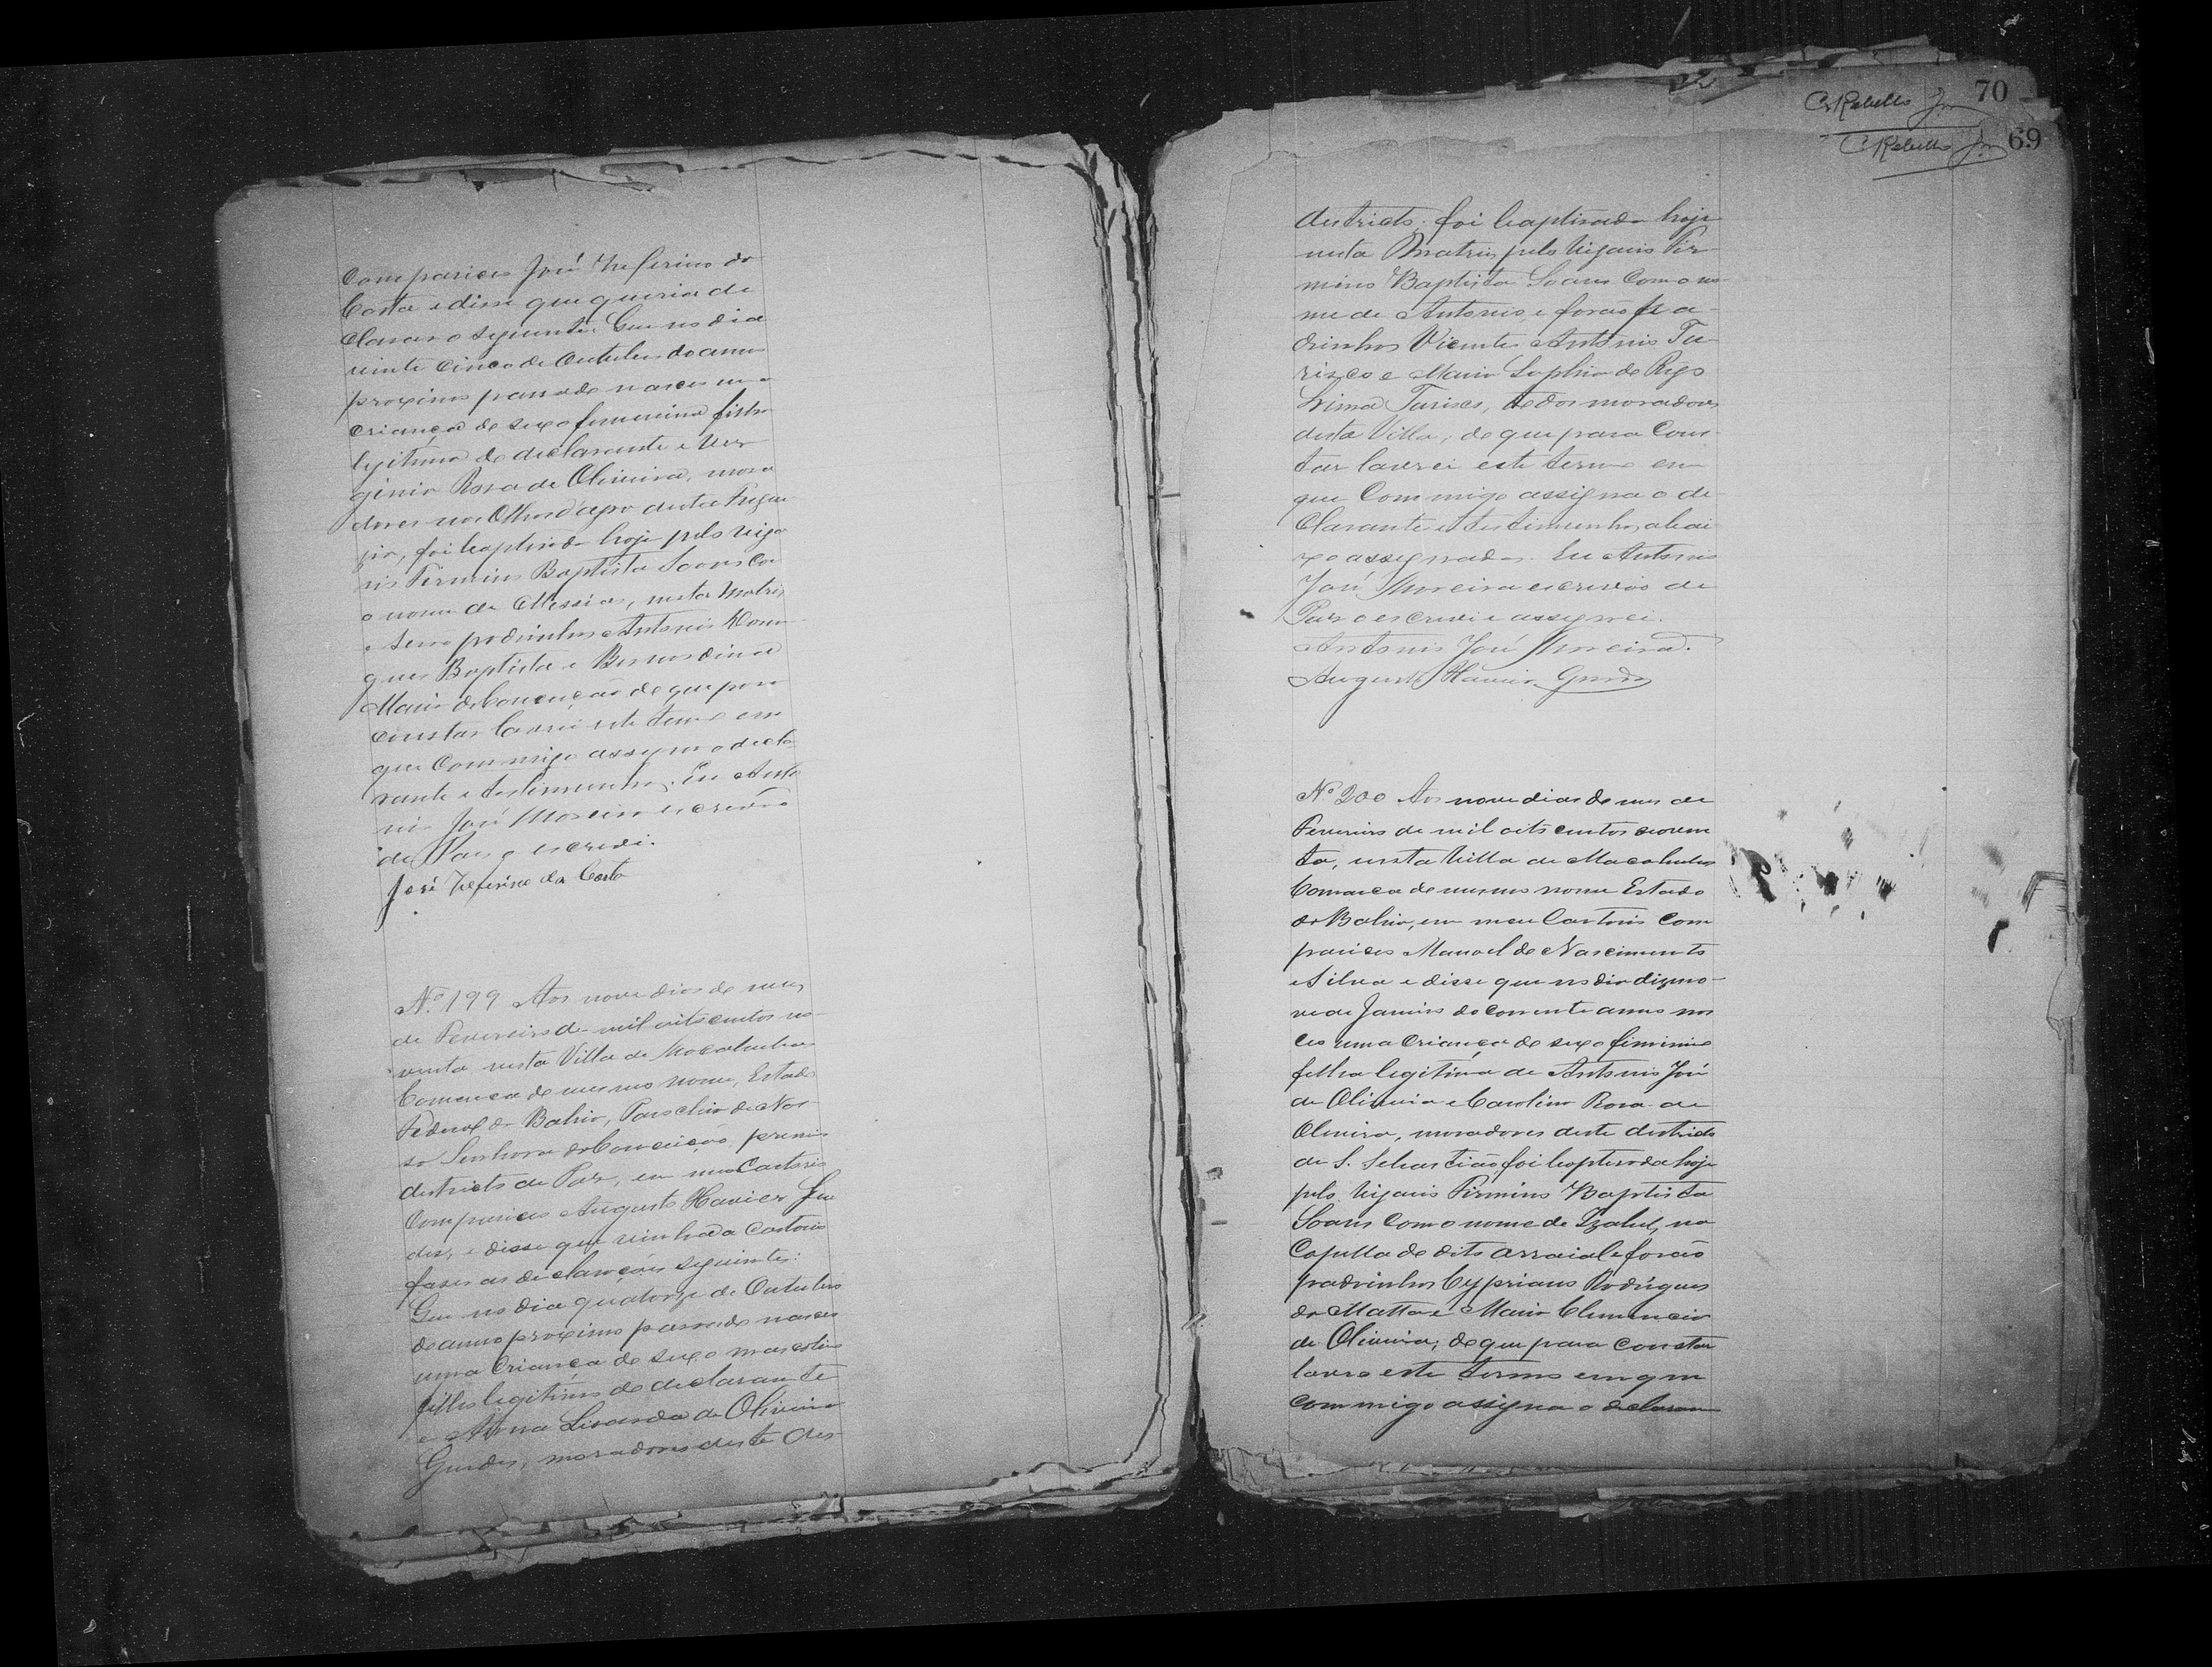 compareceo José Zeferino da
Costa e disse que queria de
clarar o seguinte: Que no dia
vinte cinco de Outubro do anno
proximo passado nasceu uma
criança do sexo femenino filha
legitima do declarante e Ver
ginia Rosa de Oliveira, mora
dores nos Olhos d'agoa desta Fregue
zia, foi baptisada hoje pelo viga
rio Firmino Baptista Soares com
o nome de Messias, nesta Matris
e serão padrinhos Antonio Domin
gues Baptista e Bernardina
Maria da Conceição de que para
constar lavrei este termo em
que commigo assigna o decla
rante e testimunhas. Eu Anto
nio José Moreira escrivão
de Paz o escrevi.
José Zeferino da Costa
Nº 199 Aos nove dias do mes
de Fevereiro de mil oito centos no
venta nesta Villa de Macahubas
Comarca do mesmo nome, Estado
Federal da Bahia, Parochia de Nos
sa Senhora da Conceição, premeiro
destricto de Paz, em meu Cartorio
compareceo Augusto Xavier Gue
des, e disse que vinha a Cartorio
faser as declarações seguintes:
Que no dia quatorze de Outubro
do anno proximo passado nasceo
uma criança do sexo mascolino
filho legitimo do declarante
e Anna Lisarda de Oliveira
Guedes, moradores deste des
70
CRebello Jor
69
CRebello Jor
destricto, foi baptisada hoje
nesta Matris pelo Vigario Fir
mino Baptista Soares com o no
me de Antonio, e forão pa
drinhos Vicente Antonio Tu
risco e Maria Sophia do Rego
Lima Turisco, todos moradores
desta Villa, do que para cons
tar lavrei este termo em
que commigo assigna o de
clarante e testimunhas abai
xo assignadas. Eu Antonio
José Moreira escrivão de
Paz o escrevi e assignei.
Antonio José Moreira.
Augusto Xavier Guedes
Nº 200 Aos nove dias do mes de
Fevereiro de mil oito centos e noven
ta, nesta Villa de Macahubas
Comarca do mesmo nome Estado
da Bahia, em meu Cartorio com
pareceo Manoel do Nascimento
e Silva e disse que no dia dizno
ve de Janeiro do corrente anno nas
ceo uma criança do sexo fiminino
filha legitima de Antonio José
de Oliveira e Carolina Rosa de
Oliveira, moradores deste destricto
de S. Sebastião, foi baptisada hoje
pelo Vigario Firmino Baptista
Soares com o nome de Izabel, na
Capella do dito arraial e forão
padrinhos Cypriano Rodrigues
da Matta e Maria Clemencia
de Oliveira; do que para constar
lavro este termo em que
commigo assigna o declaran